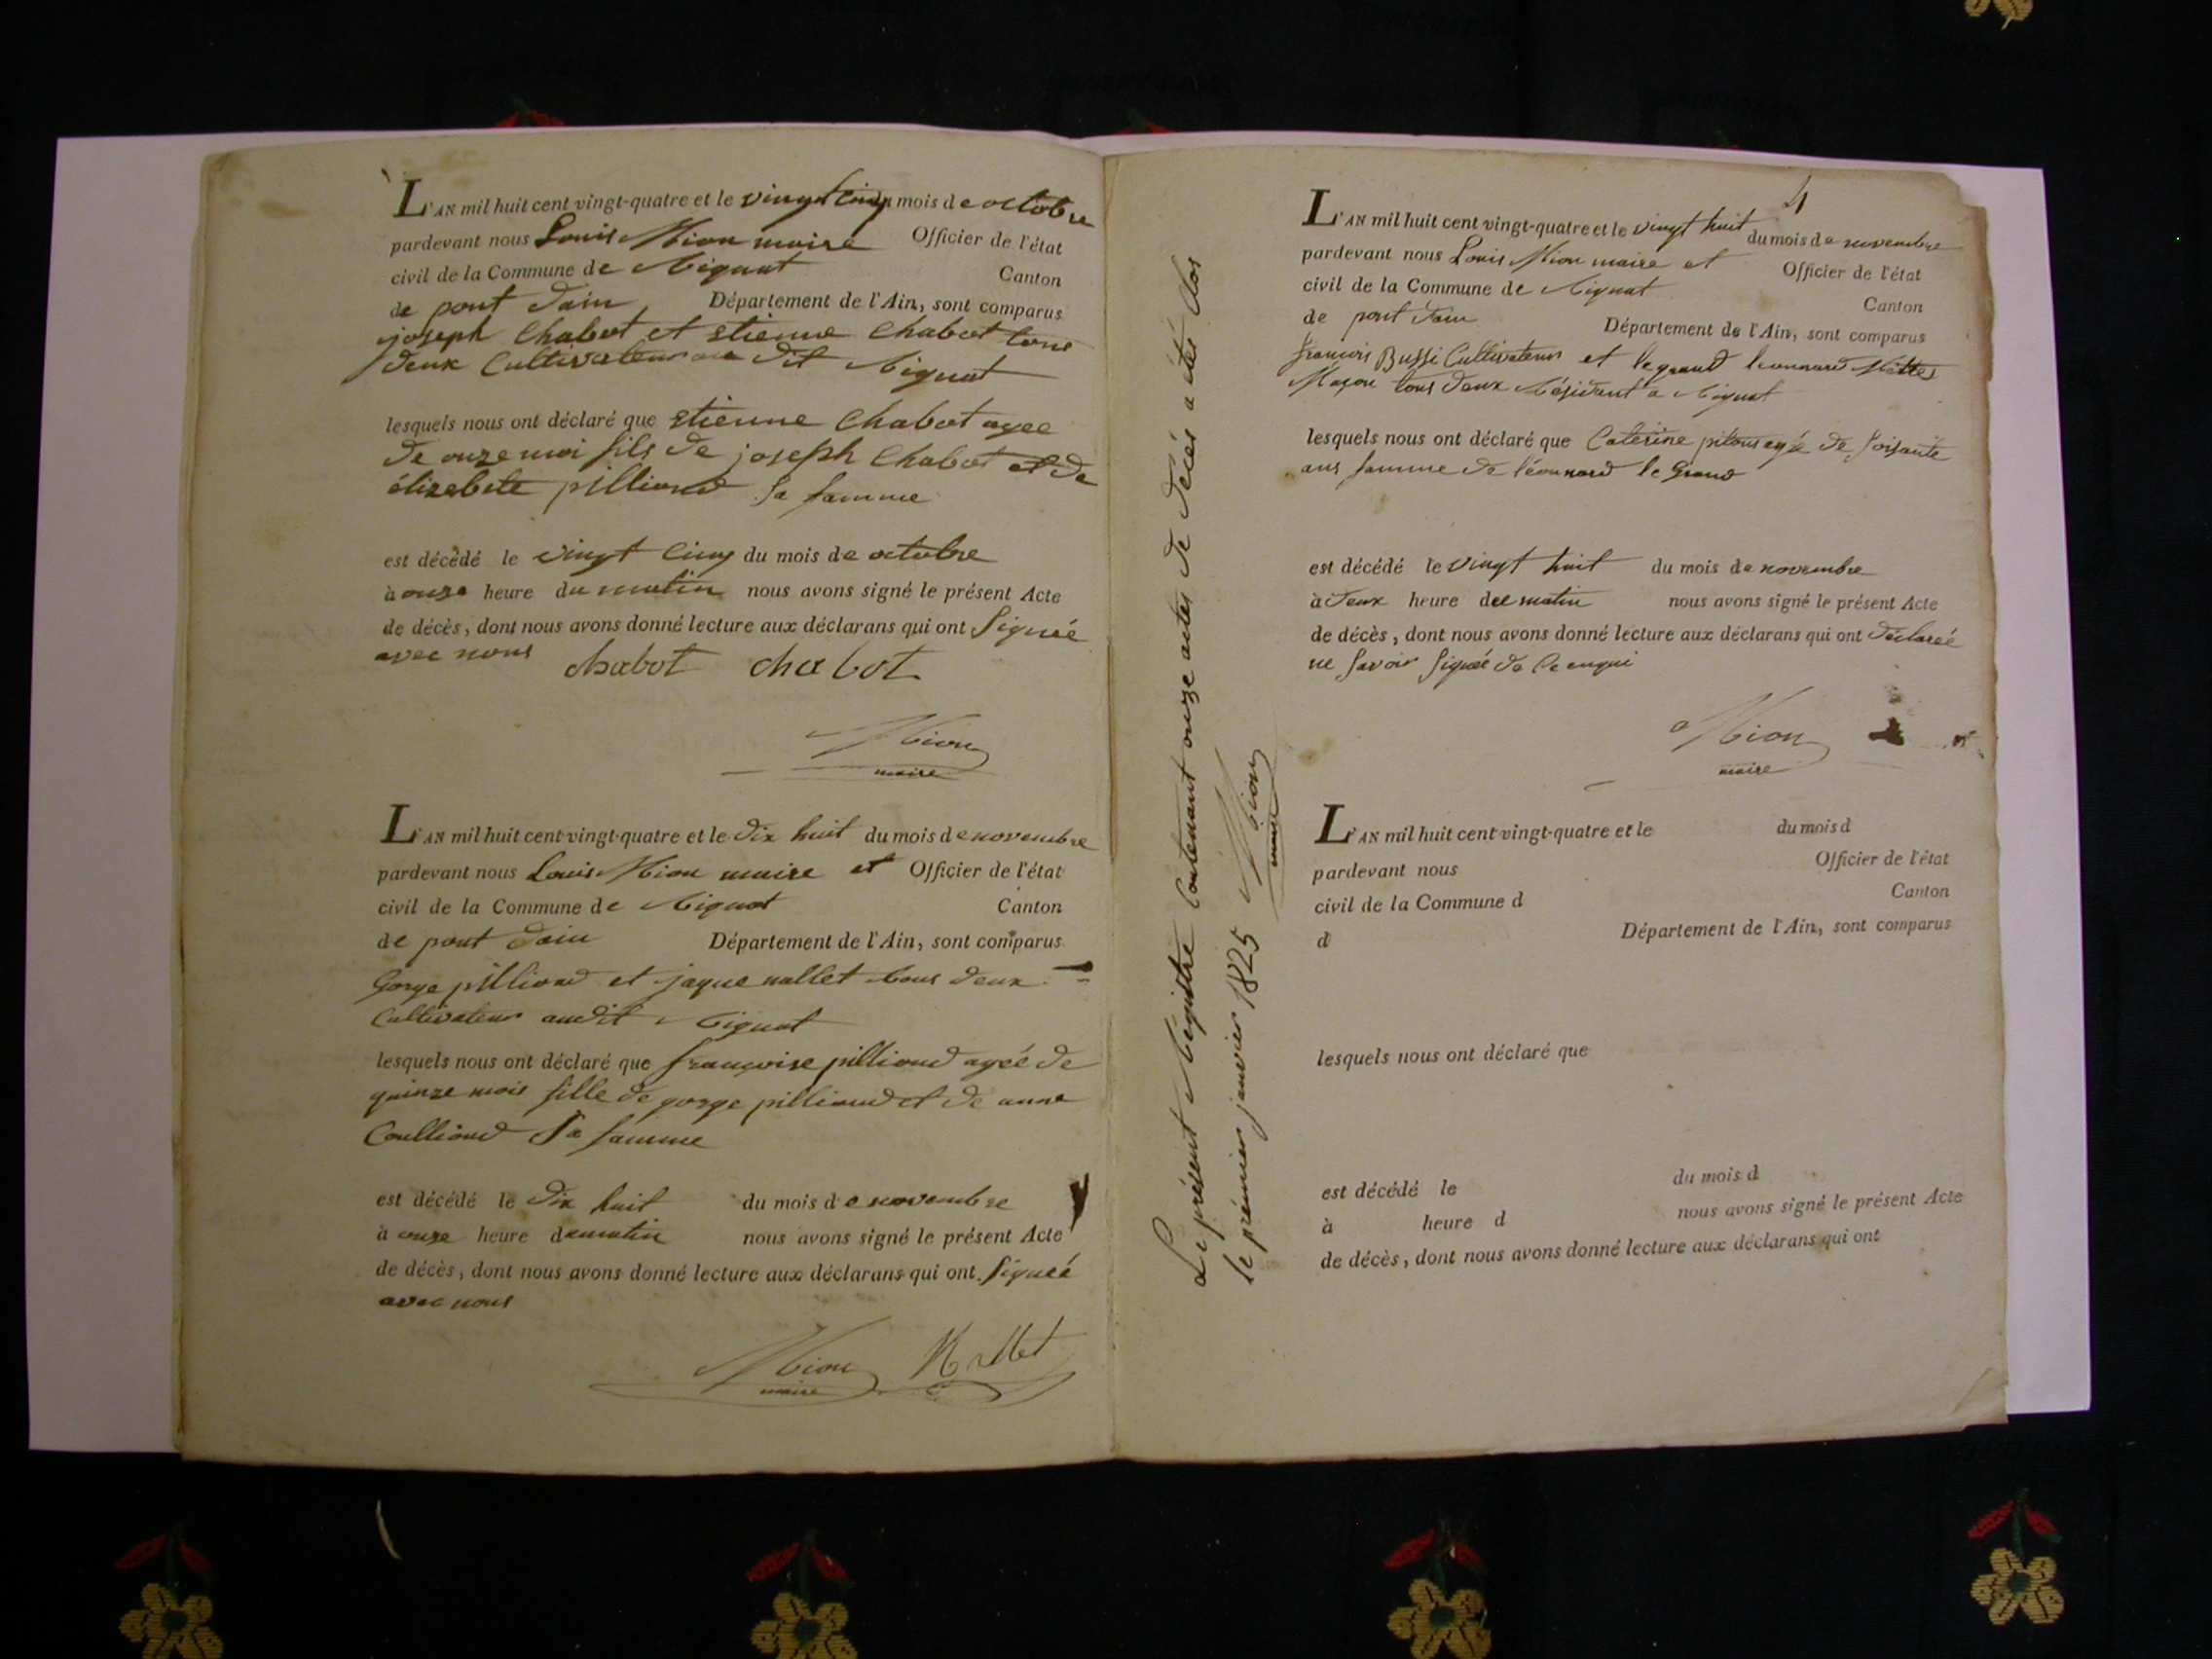 L'AN mil huit cent vingt-quatre et le vingt cinq du mois de octobre
pardevant nous Louis Mion maire Officier de l'état
civil de la Commune de Rignat Canton
de pont dain Département de l'Ain, sont comparus
joseph Chabot et etienne Chabot tous
deux Cultivateur au dit Rignat
lesquels nous ont déclaré que etienne Chabot agee
de onze moi fils de joseph Chabot et de
élizabete pilliond sa famme
est décédé le vingt cinq du mois de octobre
à onze heure du matin nous avons signé le présent Acte
de décès, dont nous avons donné lecture aux déclarans qui ont Signéé
avec nous
chabot chabot
Mion
maire
L'AN mil huit cent vingt-quatre et le dix huit du mois de novembre
pardevant nous Louis Mion maire et Officier de l'état
civil de la Commune de Rignat Canton
de pont dain Département de l'Ain, sont comparus
Gorge pilliond et jaque nallet tous deux
Cultivateur audit Rignat
lesquels nous ont déclaré que françoise pilliond agéé de
quinze mois fille de gorge pilliond et de anne
Coulliond Sa famme
est décédé le dix huit du mois de novembre
à onze heure du matin nous avons signé le présent Acte
de décès, dont nous avons donné lecture aux déclarans qui ont Signéé
avec nous
Mion Nallet
maire
Le présent Régistre Contenant onze actes de décès a étés Clos
le prémier janvier 1825 Mion
maire
4
L'AN mil huit cent vingt-quatre et le vingt huit du mois de novembre
pardevant nous Louis Mion maire et Officier de l'état
civil de la Commune de Rignat Canton
de pont dain Département de l'Ain, sont comparus
françois Bussi Cultivateur et legrand leonnard
Maçon tous deux Résidant a Rignat
lesquels nous ont déclaré que Caterine pitous agéé de soisante
ans famme de léonnard le Grand
est décédé le vingt huit du mois de novembre
à deux heure de matin nous avons signé le présent Acte
de décès, dont nous avons donné lecture aux déclarans qui ont déclaréé
ne savoir signéé de ce enqui
Mion
maire
L'AN mil huit cent vingt-quatre et le du mois d
pardevant nous Officier de l'état
civil de la Commune d Canton
d Département de l'Ain, sont comparus
lesquels nous ont déclaré que
est décédé le du mois d
à heure d nous avons signé le présent Acte
de décès, dont nous avons donné lecture aux déclarans qui ont